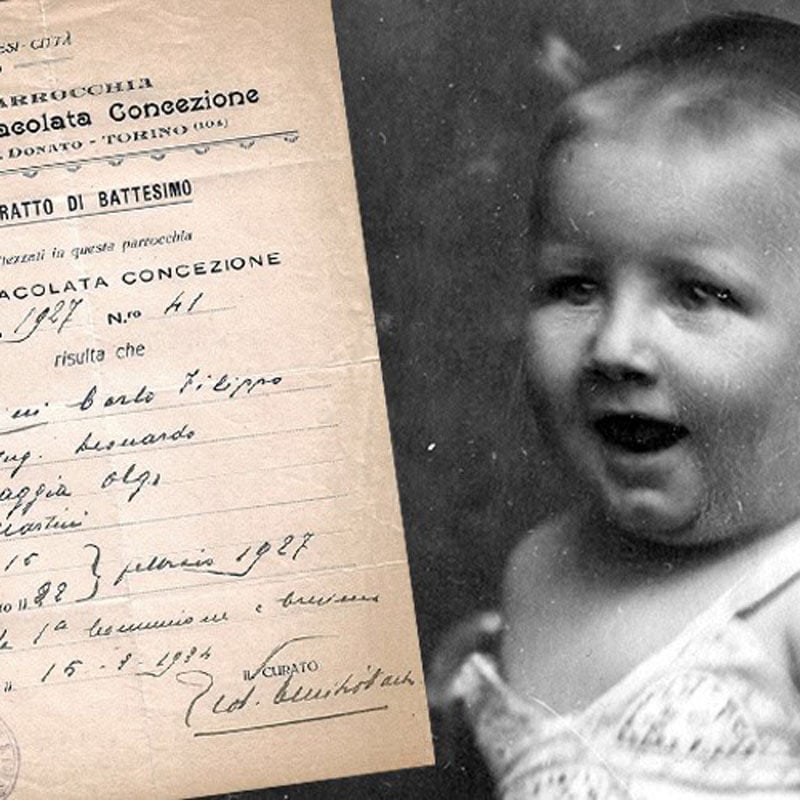 ESI-CITTÀ
ARROCCHIA
acolata Concezione
DONATO - TORINO (104)
RATTO DI BATTESIMO
ttezzati in questa parrocchia
ACOLATA CONCEZIONE
1927 N.ro 41
risulta che
ini Carlo Filippo
ing. Leonardo
aggia Olga
Martini
15
22 } febbraio 1927
1ª Comunione e
15 - 3 - 1934
IL CURATO